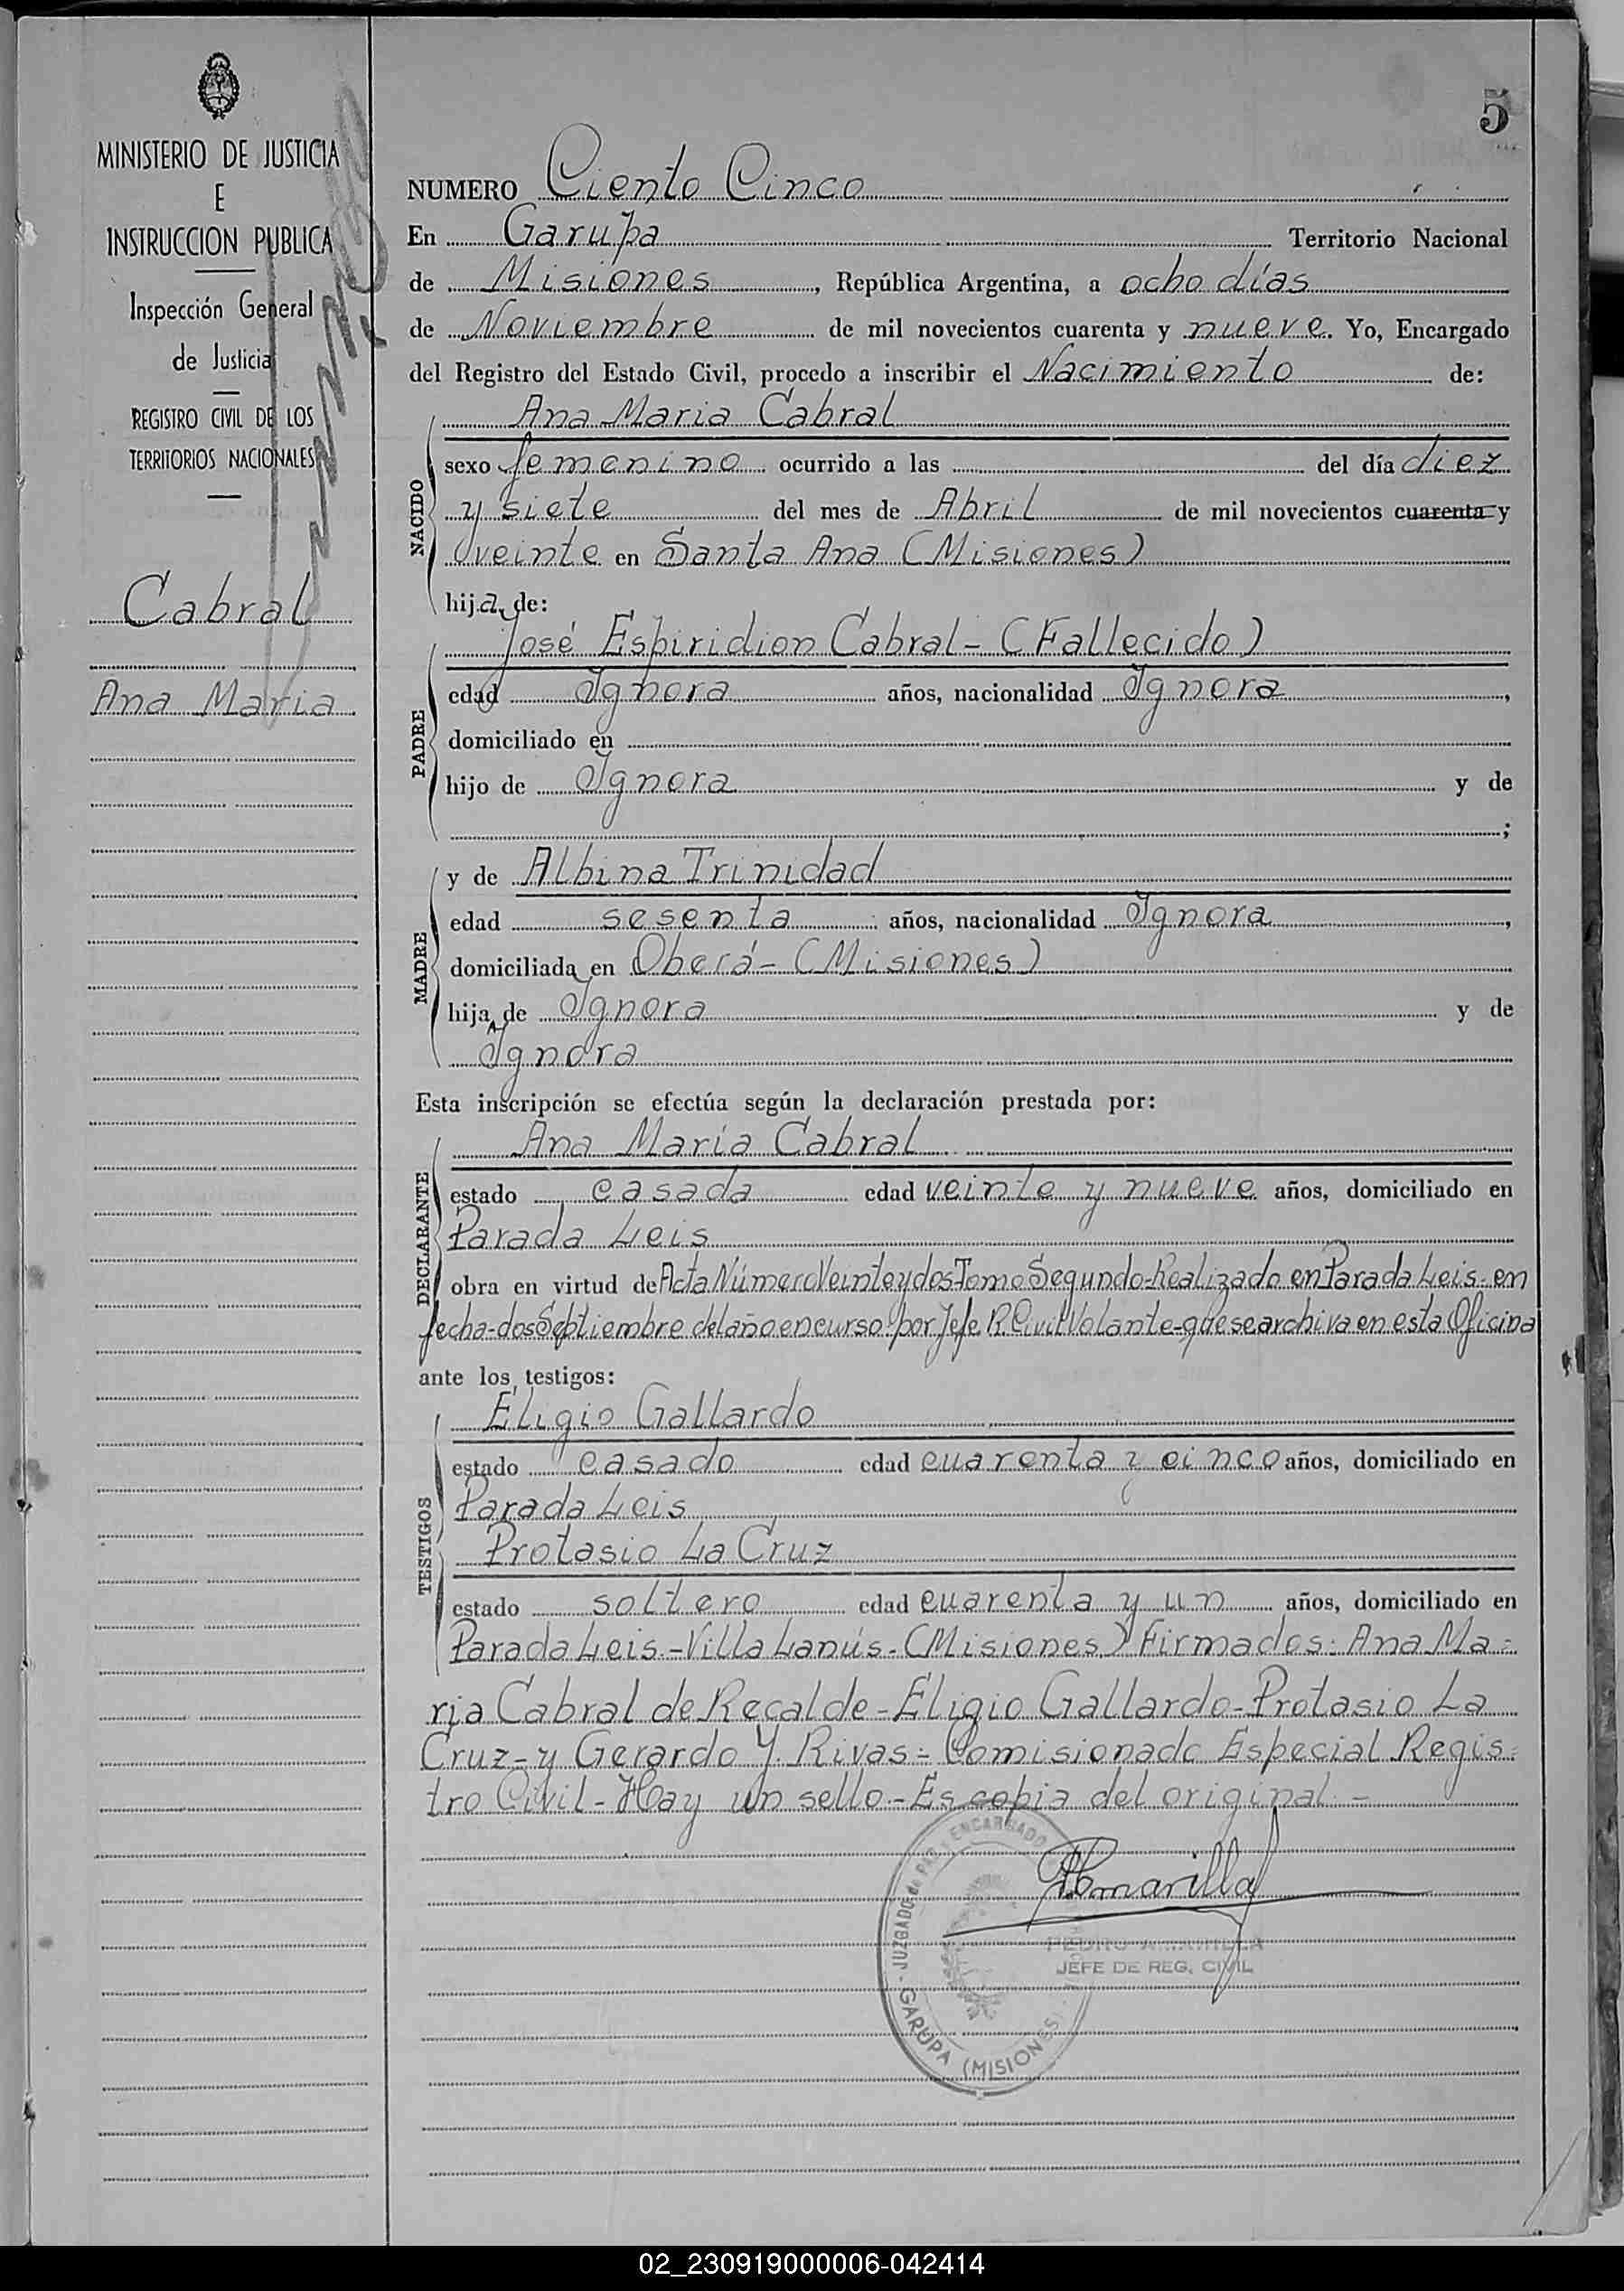 5
MINISTERIO DE JUSTICIA
E
INSTRUCCION PUBLICA
Inspección General
de Justicia
REGISTRO CIVIL DE LOS
TERRITORIOS NACIONALES
Cabral
Ana Maria
NUMERO Ciento Cinco
En Garupa Territorio Nacional
de Misiones, República Argentina, a ocho días
de Noviembre de mil novecientos cuarenta y nueve. Yo, Encargado
del Registro del Estado Civil, procedo a inscribir el Nacimiento de:
NACIDO
Ana Maria Cabral
sexo femenino ocurrido a las del día diez
y siete del mes de Abril de mil novecientos cuarenta y
veinte en Santa Ana (Misiones)
hija de:
PADRE
José Espiridion Cabral - (Fallecido)
edad Ignora años, nacionalidad Ignora,
domiciliado en
hijo de Ignora y de
;
MADRE
y de Albina Trinidad
edad sesenta años, nacionalidad Ignora,
domiciliada en Oberá - (Misiones)
hija de Ignora y de
Ignora
Esta inscripción se efectúa según la declaración prestada por:
DECLARANTE
Ana María Cabral
estado casada edad veinte y nueve años, domiciliado en
Parada Leis
obra en virtud de Acta Número Veinte y dos-Tomo Segundo-Realizado en Parada Leis-en
fecha-dos Septiembre del año en curso por Jefe R. Civil Volante-que se archiva en esta Oficina
ante los testigos:
TESTIGOS
Eligio Gallardo
estado casado edad cuarenta y cinco años, domiciliado en
Parada Leis
Protasio La Cruz
estado soltero edad cuarenta y un años, domiciliado en
Parada Leis.-Villa Lanús-(Misiones) Firmados: Ana Ma=
ria Cabral de Recalde-Eligio Gallardo-Protasio La
Cruz-y Gerardo Y. Rivas=Comisionado Especial Regis=
tro Civil-Hay un sello-Es copia del original.-
JUZGADO de PAZ y ENCARGADO
GARUPA (MISIONES)
PAmarilla
PEDRO AMARILLA
JEFE DE REG. CIVIL
02_230919000006-042414